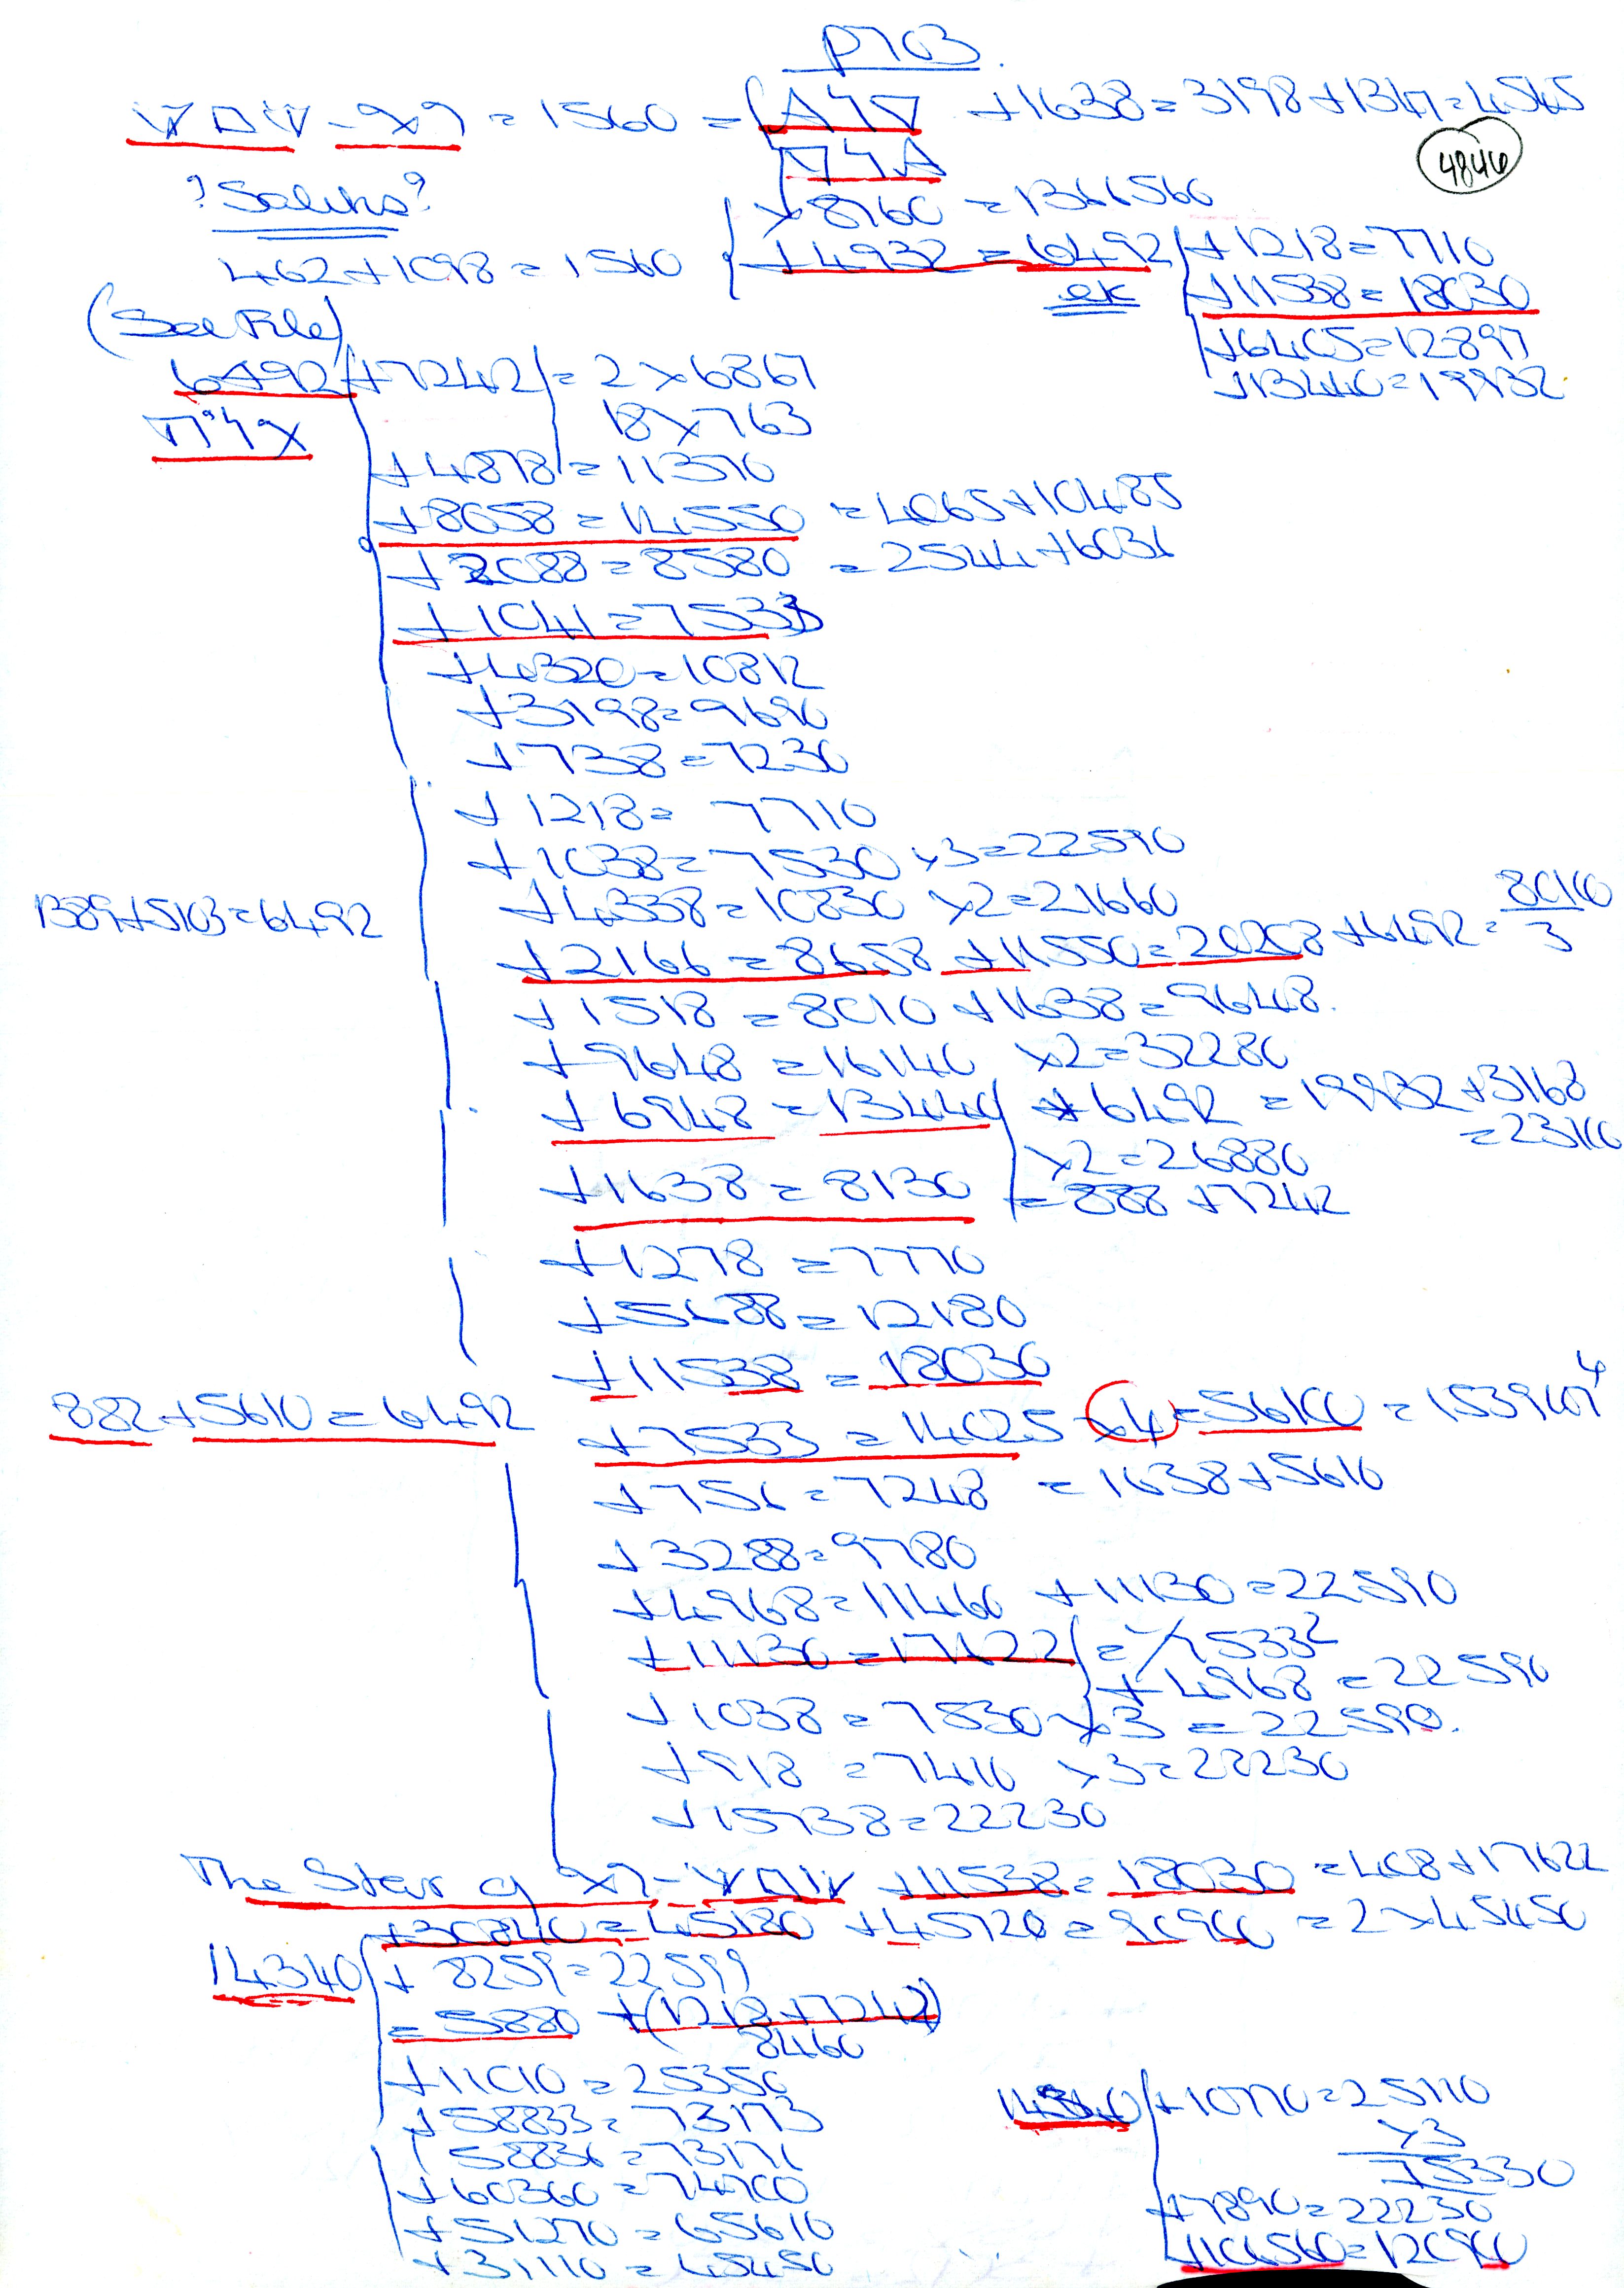 P703
= 1560 = +1638 = 3198 + 1347 = 4545
4846
?Saliks?
×8760 = 1366560
462 + 1098 = 1560
+4932 = 6492 +1218 = 7710
ek
+11538 = 18030
(See File)
+6405 = 12897
6492 +7242 = 2×6867
+13440 = 19932
18×763
+4878 = 11370
+8058 = 14550 = 4065 + 10485
+2088 = 8580 = 2544 + 6036
+1041 = 7533
+4320 = 10812
+3198 = 9690
+738 = 7230
+1218 = 7710
+1038 = 7530 ×3 = 22590
1389 + 5103 = 6492
+4338 = 10830 ×2 = 21660
+2166 = 8658 + 11550 = 20208 + 6492 = 80100/3
+1518 = 8010 + 1638 = 9648.
+9648 = 16140 ×2 = 32280
+6948 = 13440 +6492 = 19932 + 3168
= 23100
×2 = 26880
+1638 = 8130 = 888 + 7242
+1278 = 7770
+5688 = 12180
+11538 = 18030
882 + 5610 = 6492
+7533 = 14025 ×4 = 56100 = 153 4
+756 = 7248 = 1638 + 5610
+3288 = 9780
+4968 = 11460 + 11130 = 22590
+11130 = 17622 = 7533²
+4968 = 22590
+1038 = 7530 ×3 = 22590.
+918 = 7410 ×3 = 22230
+15738 = 22230
The Star of +11538 = 18030 = 408 + 17622
+30840 = 45180 + 45720 = 90900 = 2×45450
14340 + 8259 = 22599
= 5880 + (1218 + 7242)
8460
+11010 = 25350
+58833 = 73173
58836 = 73176
+60360 = 74700
+51270 = 65610
+31110 = 45450
14340 +10770 = 25110
×3
75330
+7890 = 22230
+106560 = 120900